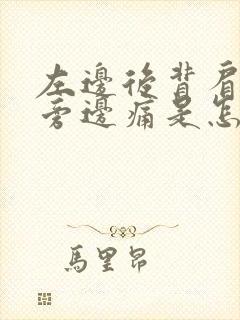 左邊後背肩
旁邊痛是怎
馬里昂